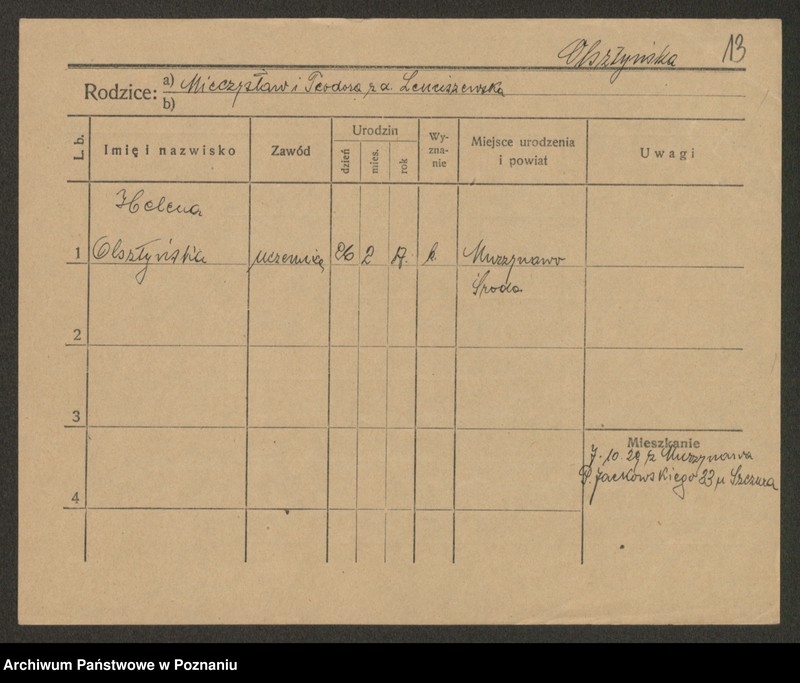 Olsztyńska 13
Rodzice: a) Mieczysław i Teodora z d. Lenciszewska
b)
L. b.
Imię i nazwisko
Zawód
Urodzin
dzień
mies.
rok
Wy-
zna-
nie
Miejsce urodzenia
i powiat
Uwagi
Helena
1 Olsztyńska uczenica 26 2 17. k. Murzynowo
Środa
2
3
4
Mieszkanie
7. 10. 29 z Murzynowa
P. Jackowskiego 33 u Szczura
Archiwum Państwowe w Poznaniu